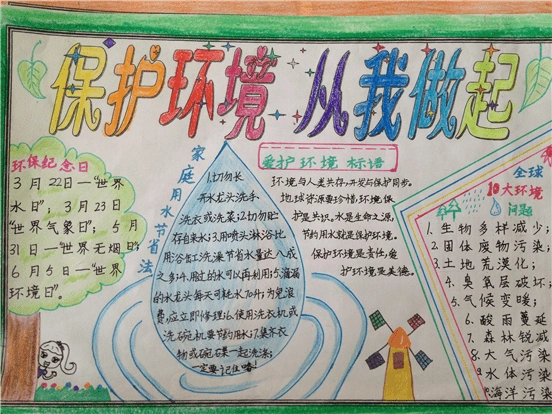 保护环境 从我做起
环保纪念日
3月22日—"世界
水日"；3月23日
"世界气象日"；5月
31日—"世界无烟日"；
6月5日—"世界
环境日"。
家庭用水节省法
1.切勿长
开水龙头洗手、
洗衣或洗菜；2.切勿贮
存自来水；3.用喷头淋浴比
用浴缸洗澡节省水量达八成
之多；4.用过的水可以再利用；5.滴漏
的水龙头每天可耗水70升；为免浪
费，应立即修理；6.使用洗衣机或
洗碗机要节约用水；7.集齐衣
物或碗碟一起洗涤；
一定要记住噢！
爱护环境 标语
环境与人类共存，开发与保护同步。
地球资源要珍惜，环境保
护是共识。水是生命之源，
节约用水就是保护环境。
保护环境是责任，爱
护环境是美德。
全球
10大环境
问题
1.生物多样减少；
2.固体废物污染
3.土地荒漠化；
4.臭氧层破坏；
5.气候变暖；
6.酸雨蔓延
7.森林锐减
8.大气污染
9.水体污染
海洋污染